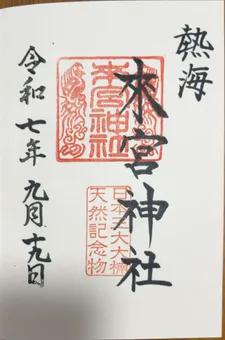 熱海
來宮神社
來宮神社
日本三大大樟
天然記念物
令和七年 九月十九日